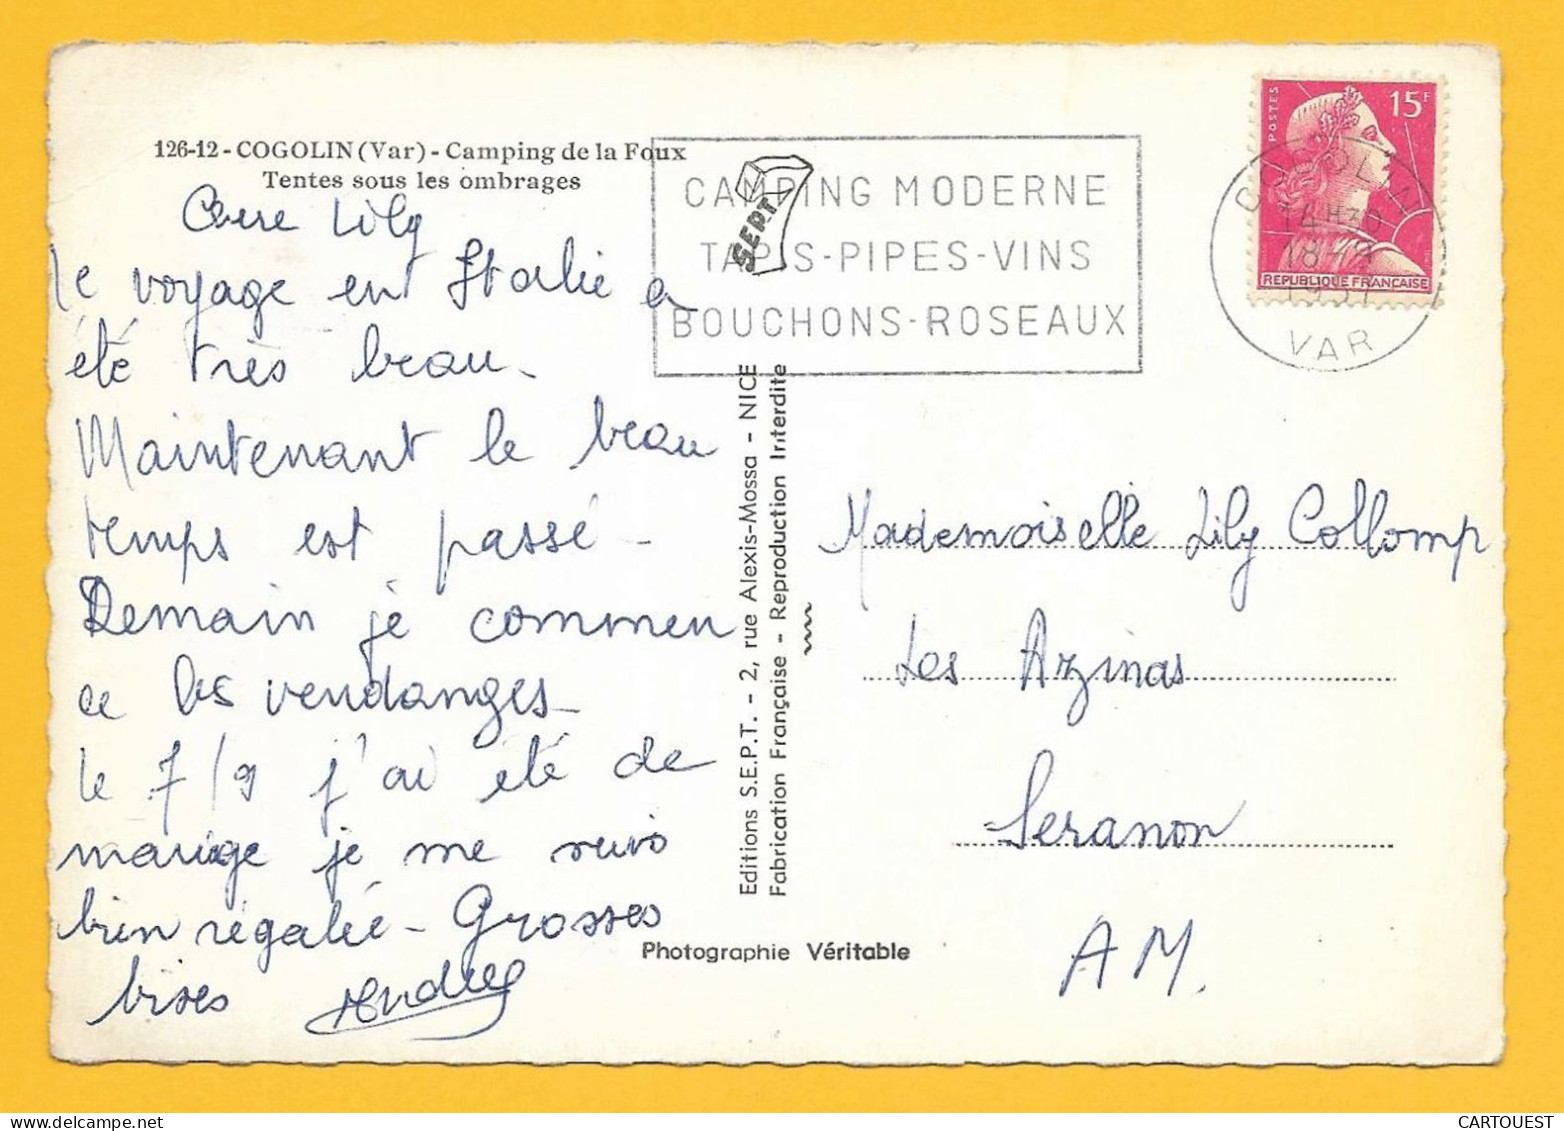 126-12 - COGOLIN (Var) - Camping de la Foux
Tentes sous les ombrages
Chere Lily
le voyage en Italie a
été très beau.
Maintenant le beau
temps est passé -
Demain je commen
ce les vendanges -
le 7/9 j'ai été de
mariage je me suis
bien régalée - Grosses
bises Andrée
SEPT
CAMPING MODERNE
TAPIS-PIPES-VINS
BOUCHONS-ROSEAUX
POSTES
15F
REPUBLIQUE FRANCAISE
COGOLIN
14 H30
1957
VAR
Editions S.E.P.T. - 2, rue Alexis-Mossa - NICE
Fabrication Française - Reproduction Interdite
Photographie Véritable
Mademoiselle Lily Collomp
Les Azinas
Seranon
A M.
CARTOUEST